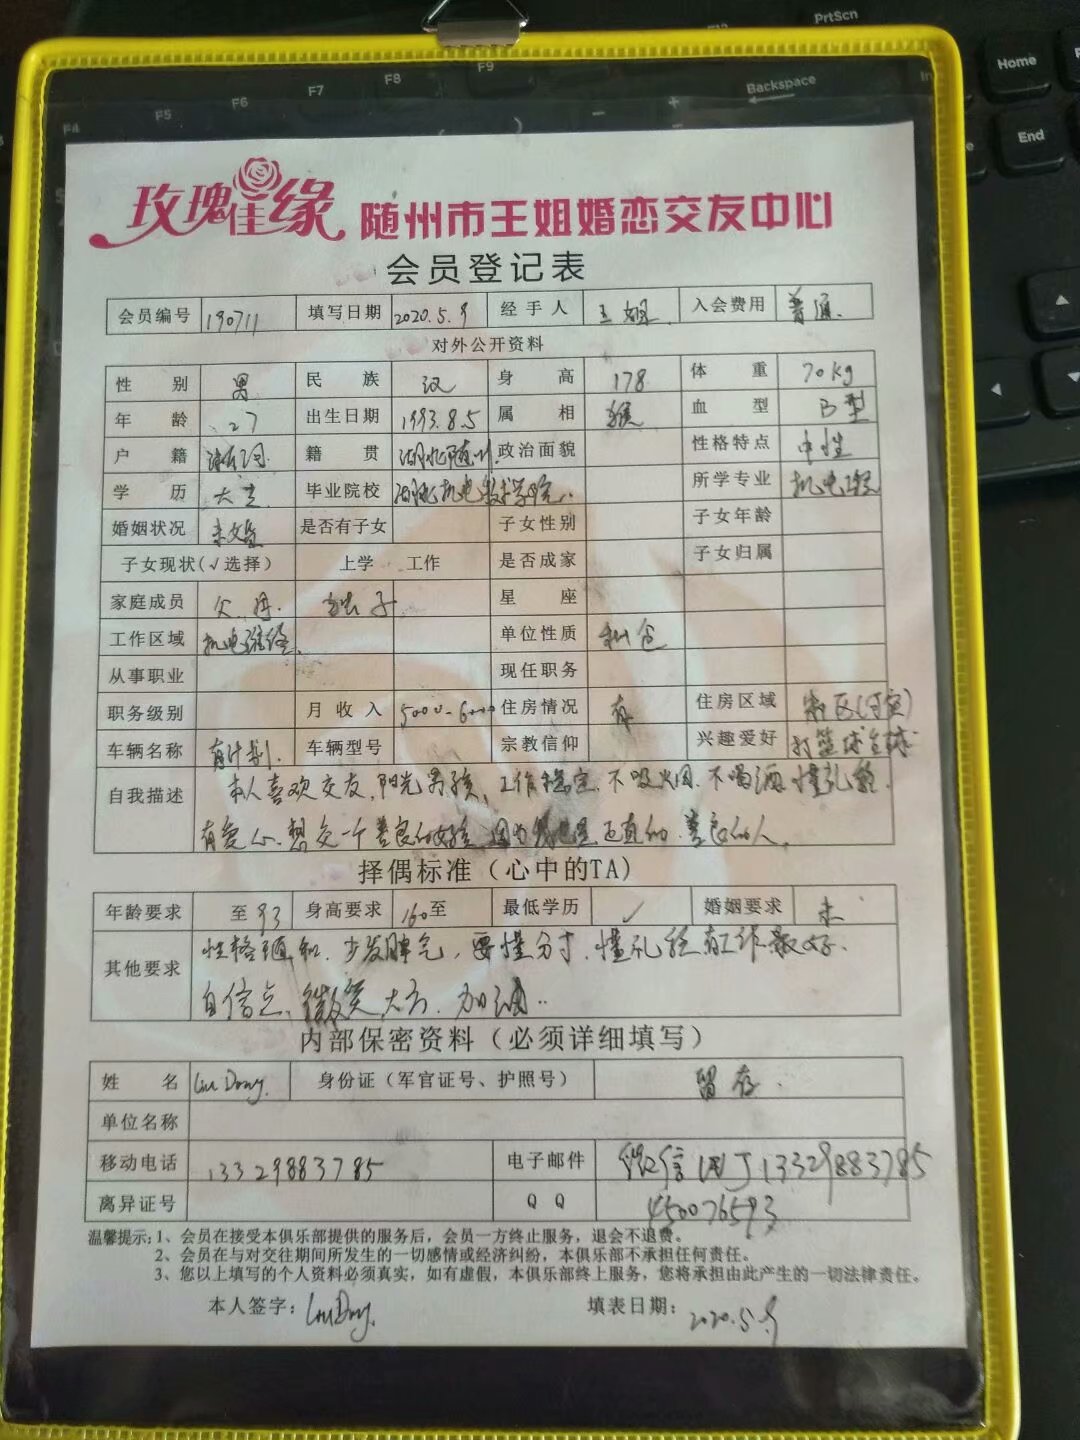 玫瑰佳缘 随州市王姐婚恋交友中心
会员登记表
会员编号 190711 填写日期 2020.5.9 经手人 王姐 入会费用 普通
对外公开资料
性别 男 民族 汉 身高 178 体重 70kg
年龄 27 出生日期 1993.8.5 属相 猴 血型 B型
户籍 籍贯 湖北随州 政治面貌 性格特点 中性
学历 大专 毕业院校 湖北机电技术学院 所学专业 机电工程
婚姻状况 未婚 是否有子女 子女性别 子女年龄
子女现状(√选择) 上学 工作 是否成家 子女归属
家庭成员 父.母. 独子 星座
工作区域 机电维修 单位性质 私企
从事职业 现任职务
职务级别 月收入 5000-6000 住房情况 有 住房区域 市区
车辆名称 有计划. 车辆型号 宗教信仰 兴趣爱好 打篮球
自我描述 本人喜欢交友,阳光男孩、工作稳定.不吸烟.不喝酒.懂礼貌.
有爱心.想交一个善良的女孩 善良的人.
择偶标准（心中的TA）
年龄要求 至93 身高要求 160至 最低学历 ✓ 婚姻要求 未
其他要求 性格随和.少发脾气,要懂分寸.懂礼 有工作最好.
自信点、微笑大方.加油..
内部保密资料（必须详细填写）
姓名 Liu Dong. 身份证（军官证号、护照号） 留存.
单位名称
移动电话 13329883785 电子邮件 微信 13329883785
离异证号 QQ 450076593
温馨提示:1、会员在接受本俱乐部提供的服务后，会员一方终止服务，退会不退费。
2、会员在与对交往期间所发生的一切感情或经济纠纷，本俱乐部不承担任何责任。
3、您以上填写的个人资料必须真实，如有虚假，本俱乐部终上服务，您将承担由此产生的一切法律责任。
本人签字: Liu Dong. 填表日期: 2020.5.9